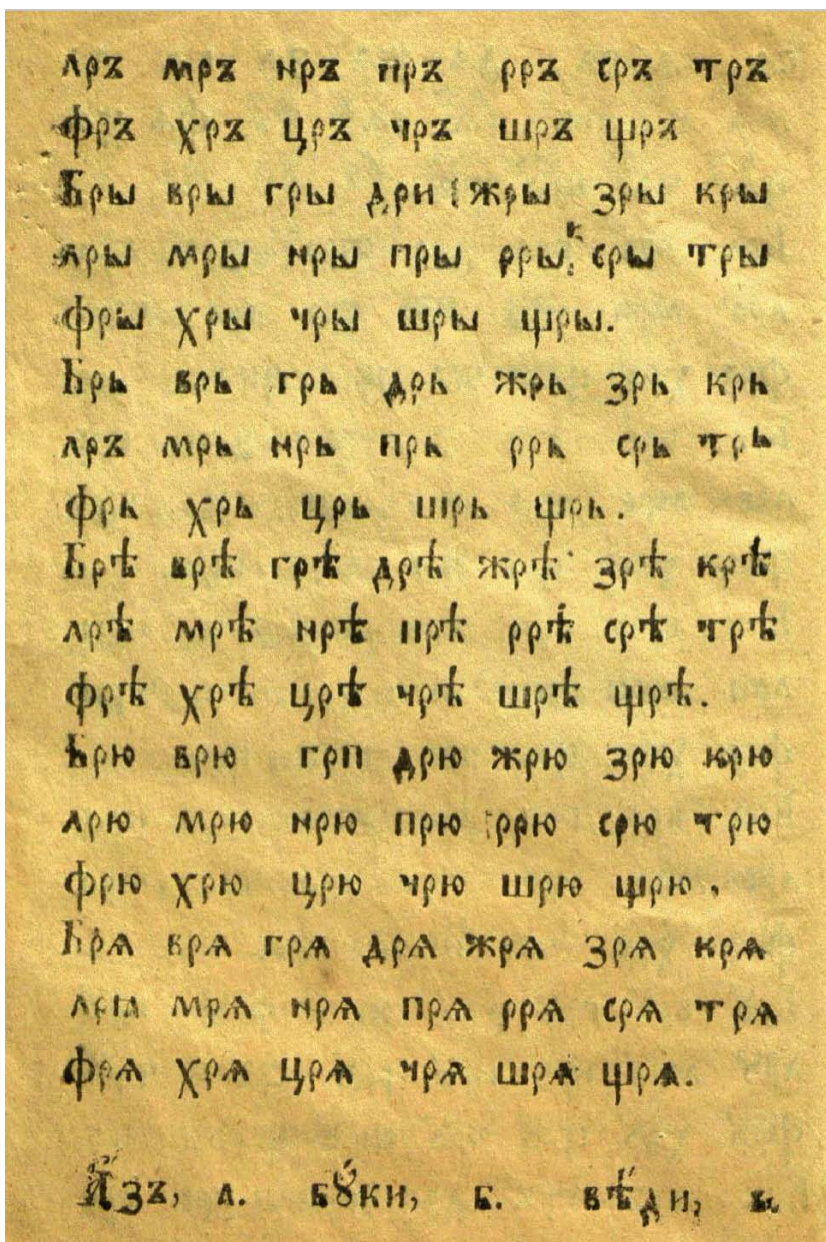 лръ мръ нръ пръ рръ сръ тръ
фръ хръ цръ чръ шръ щръ
Бры вры гры дри жры зры кры
лры мры нры пры рры, сры тры
фры хры чры шры щры.
Брь врь грь дрь жрь зрь крь
лръ мрь нрь прь ррь срь трь
фрь хрь црь шрь щрь.
Брѣ врѣ грѣ дрѣ жрѣ зрѣ крѣ
лрѣ мрѣ нрѣ прѣ ррѣ срѣ трѣ
фрѣ хрѣ црѣ чрѣ шрѣ щрѣ.
Брю врю грп дрю жрю зрю крю
лрю мрю нрю прю ррю срю трю
фрю хрю црю чрю шрю щрю,
Брѧ врѧ грѧ дрѧ жрѧ зрѧ крѧ
лрꙗ мрѧ нрѧ прѧ ррѧ срѧ трѧ
фрѧ хрѧ црѧ чрѧ шрѧ щрѧ.
А҆́зъ, а. бꙋ́ки, б. вѣ́ди, в.